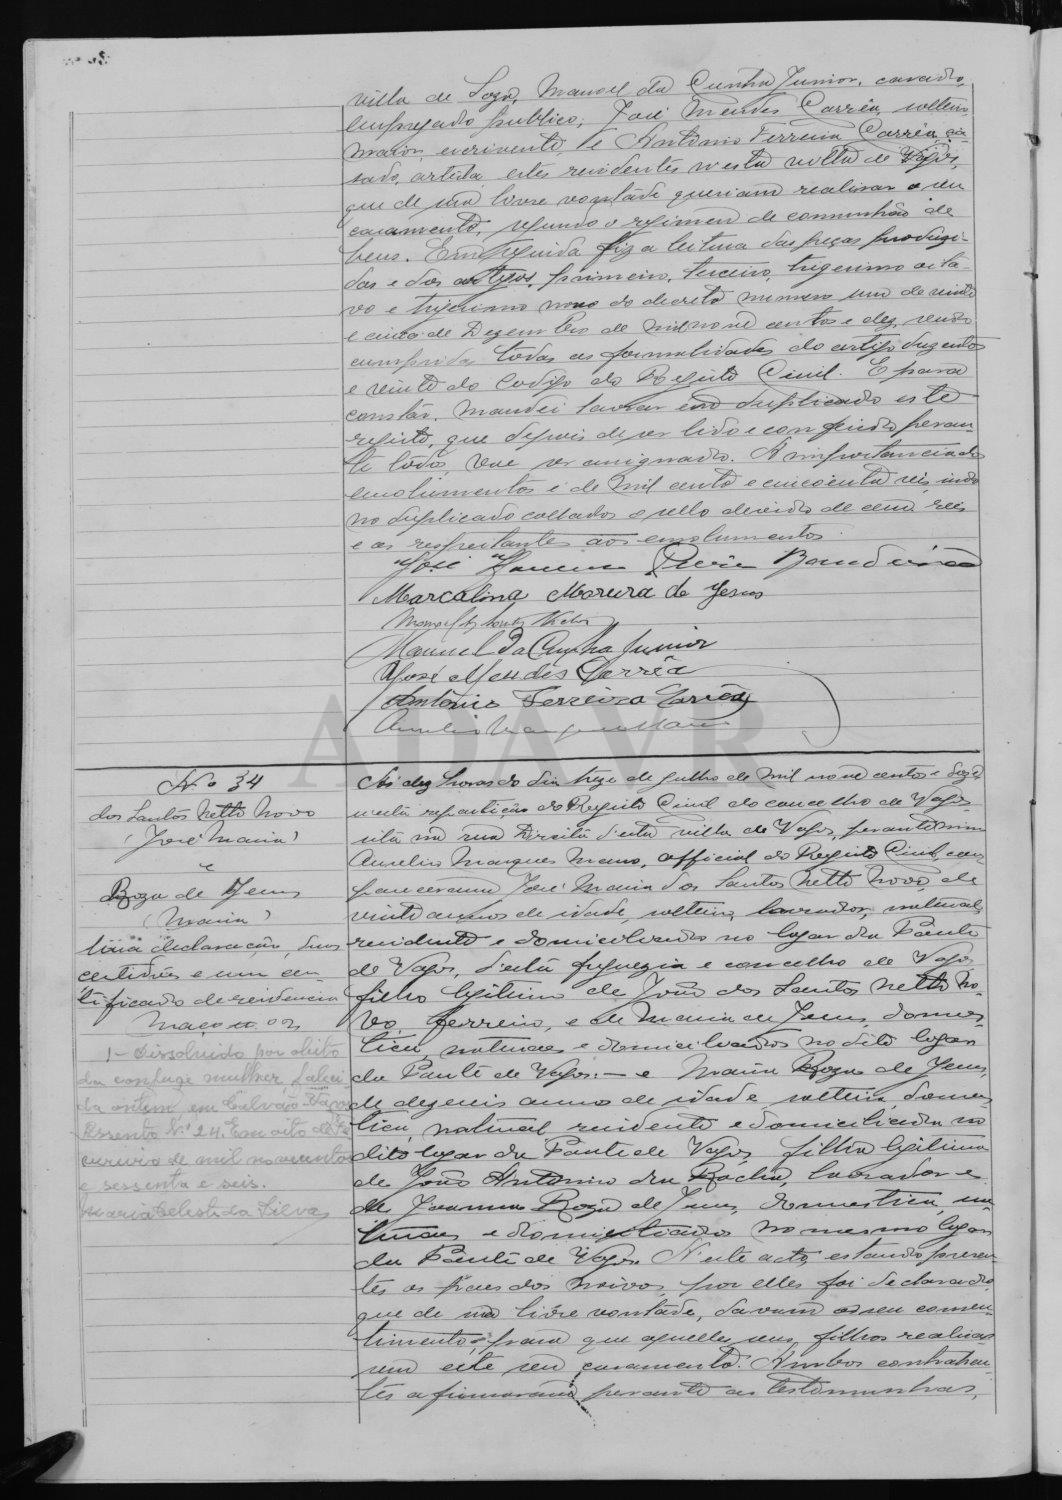 villa de Soza, Manoel da Cunha Junior, casado,
empregado publico, José Mendes Corrêa, solteiro,
maior, escrivente, e Antonio Ferreira Corrêa, ca-
sado, artista, estes residentes nesta villa de Vagos,
que de sua livre vontade queriam realisar o seu
casamento, segundo o regimen de comunhão de
bens. Em seguida fiz a leitura das peças produzi-
das e dos artigos, primeiro, terceiro, trigesimo oita-
vo e trigesimo nono do decreto numero um de vinte
e cinco de Dezembro de mil nove centos e dez, sendo
cumpridas todas as formalidades do artigo duzentos
e vinte do Codigo do Registo Civil. E para
constar, mandei lavrar em duplicado este
registo, que depois de ser lido e conferido peran-
te todos, vae ser assignado. A importancia dos
emolumentos é de mil cento e cincoenta reis, indo
no duplicado collados o sello devido de cem reis
e os respeitantes aos emolumentos.
José
Marcalina Moreira de Jesus
Manuel da Cunha Junior
José Mendes Corrêa
António Ferreira Corrêa
ADAVR
N.º 34
dos Santos Netto Novo
(José Maria)
e
Roza de Jesus
(Maria)
Uma declaração, duas
certidões e um cer
tificado de residencia
Maço n.º 2
1- Dissolvido por obito
da conjuge mulher, faleci
da ontem em Calvão Vagos
Assento N.º 24. Em oito de
de mil novecentos
e sessenta e seis.
Maria Celeste da Silva
Ás dez horas do dia treze de julho de mil nove centos e doze
nesta repartição do Registo Civil do concelho de Vagos
sita na rua Direita d'esta villa de Vagos, perante mim
Aurelio Marques Mano, official do Registo Civil, com
pareceram José Maria dos Santos Netto Novo, de
vinte annos de idade, solteiro, lavrador, natural,
residente e domiciliado no logar da Ponte
de Vagos, d'esta freguezia e concelho de Vagos
filho legitimo de João dos Santos Netto No-
vo, ferreiro, e de Maria de Jesus, domes-
tica, naturaes e domiciliados no dito logar
da Ponte de Vagos:— e Maria Roza de Jesus,
de dezeseis annos de idade, solteira, domes-
tica, natural residente e domiciliada no
dito logar da Ponte de Vagos, filha legitima
de João Antonio da Rocha, lavrador e
de Joanna Roza de Jesus, domestica, na-
turaes e domiciliados no mesmo logar
da Ponte de Vagos. N'este acto, estando presen-
tes os paes dos noivos, por elles foi declarado,
que de sua livre vontade, davam o seu consen-
timento para que aquelles seus filhos realisas-
sem este seu casamento. Ambos contrahen-
tes afirmaram perante as testemunhas,